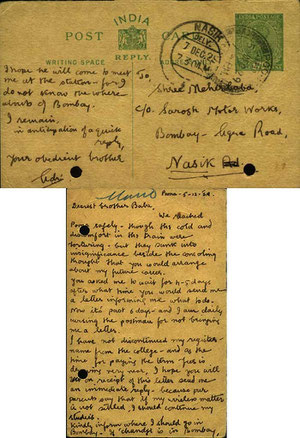 INDIA
POST CARD
REPLY.
WRITING SPACE
NASIK
7 DEC 25
I hope he will come to meet
me at the station - for I
do not know the where
abouts of Bombay.
I remain,
in anticipation of a quick
reply,
Your obedient brother
Adi
To,
Shree Meherbaba,
C/o. Sarosh Motor Works,
Bombay - Agra Road,
Nasik Rd.
Poona - 5-12-
Dearest brother Baba
We reached
Poona safely - though the cold and
discomfort in the train were
torturing - but they sunk into
insignificance beside the consoling
thought that you would arrange
about my future career.
You asked me to wait for 4-5 days
after what time you would send me
a letter informing me what to do.
Now it's past 5 days - and I am daily
cursing the postman for not bringing
me a letter.
I have not discontinued my register-
name from the college - and as the
time for paying the term fees is
drawing very near, I hope you will
on receipt of this letter send me
an immediate reply - because our
parents say that if my wireless matter
is not settled, I should continue my
studies.
Kindly inform where I should go in
Bombay - if changji is in Bombay,